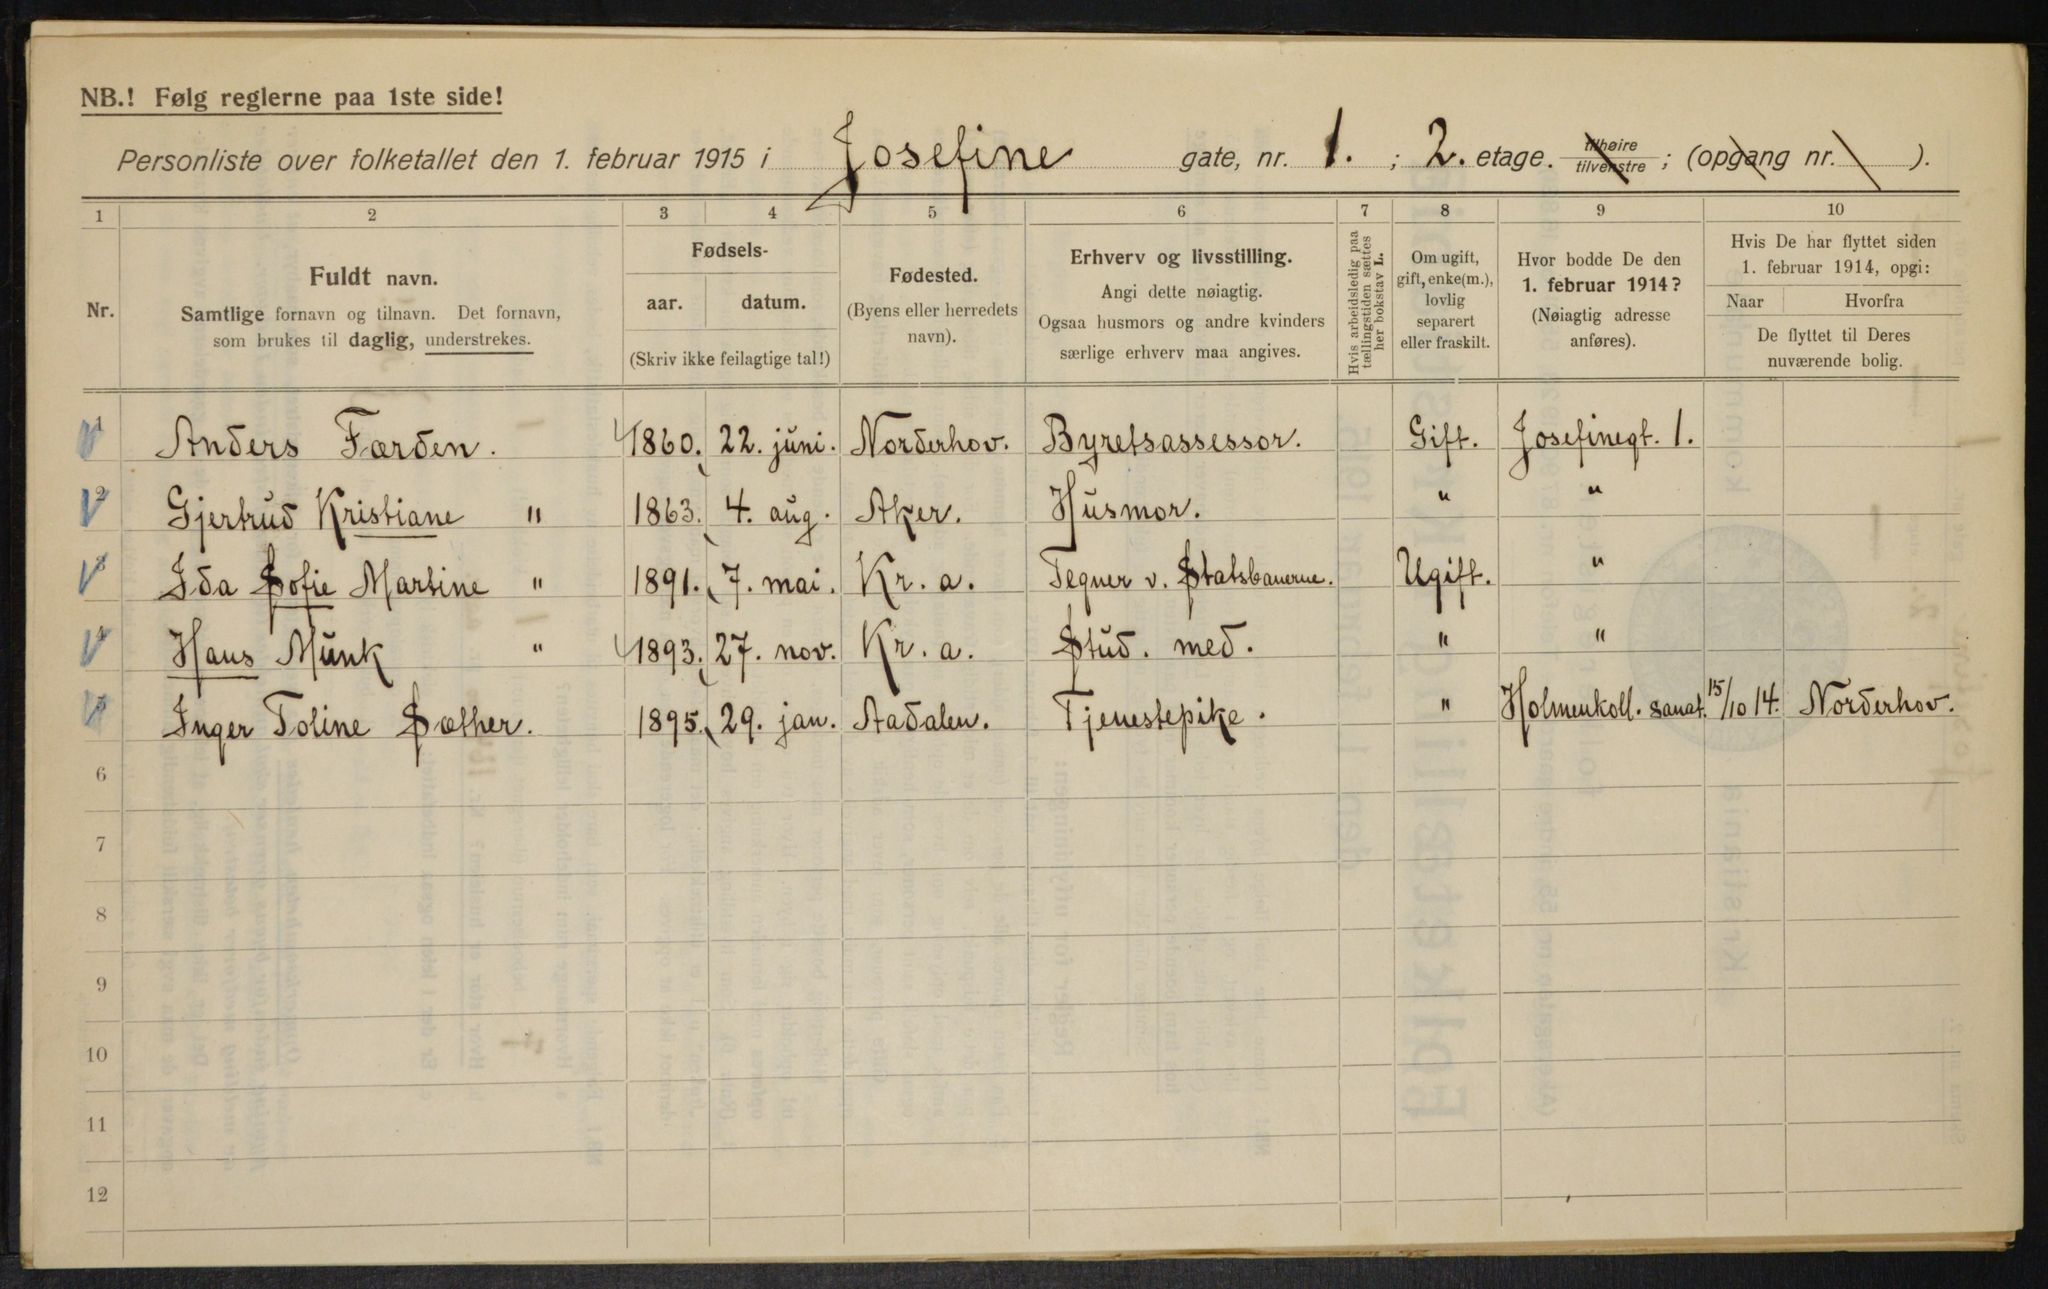 NB.! Følg reglerne paa 1ste side!
Personliste over folketallet den 1. februar 1915 i Josefine gate, nr. 1. ; 2. etage. tilhøire tilvenstre ; (opgang nr. ).
1 2 3 4 5 6 7 8 9 10
Nr.
Fuldt navn.
Samtlige fornavn og tilnavn. Det fornavn,
som brukes til daglig, understrekes.
Fødsels-
aar. datum.
(Skriv ikke feilagtige tal!)
Fødested.
(Byens eller herredets
navn).
Erhverv og livsstilling.
Angi dette nøiagtig.
Ogsaa husmors og andre kvinders
særlige erhverv maa angives.
Hvis arbeidsledig paa
tællingstiden sættes
her bokstav L.
Om ugift,
gift, enke(m.),
lovlig
separert
eller fraskilt.
Hvor bodde De den
1. februar 1914?
(Nøiagtig adresse
anføres).
Hvis De har flyttet siden
1. februar 1914, opgi:
Naar Hvorfra
De flyttet til Deres
nuværende bolig.
1 Anders Færden. 1860. 22. juni. Norderhov. Byretsassessor. Gift. Josefinegt. 1.
2 Gjertrud Kristiane " 1863. 4. aug. Aker. Husmor. " "
3 Ida Sofie Martine " 1891. 7. mai. Kr. a. Tegner v. Statsbanerne. Ugift. "
4 Hans Munk " 1893. 27. nov. Kr. a. Stud. med. " "
5 Inger Toline Sæther. 1895. 29. jan. Aadalen. Tjenestepike. " Holmenkoll. sanat. 15/10 14. Norderhov.
6
7
8
9
10
11
12